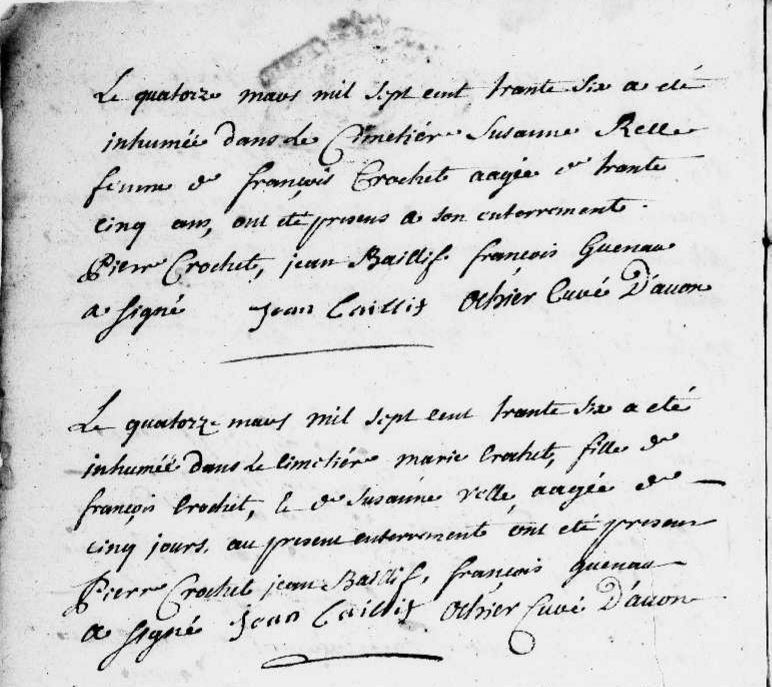 Le quatorze mars mil sept cent trante six a eté
inhumée dans le Cimetiére Susanne Relle
femme de françois Crochet aagée de trante
cinq ans, ont eté presens a son enterrement
Pierre Crochet, jean Baillif françois Guenau
a signé jean Baillif Othier Curé D'avon
Le quatorze mars mil sept cent trante six a eté
inhumée dans le cimetiére marie Crochet, fille de
françois Crochet, & de Susanne relle, aagée de
cinq jours. au present enterrement ont eté presens
Pierre Crochet jean Baillif, françois guenau
a signé jean Baillif Othier Curé D'avon